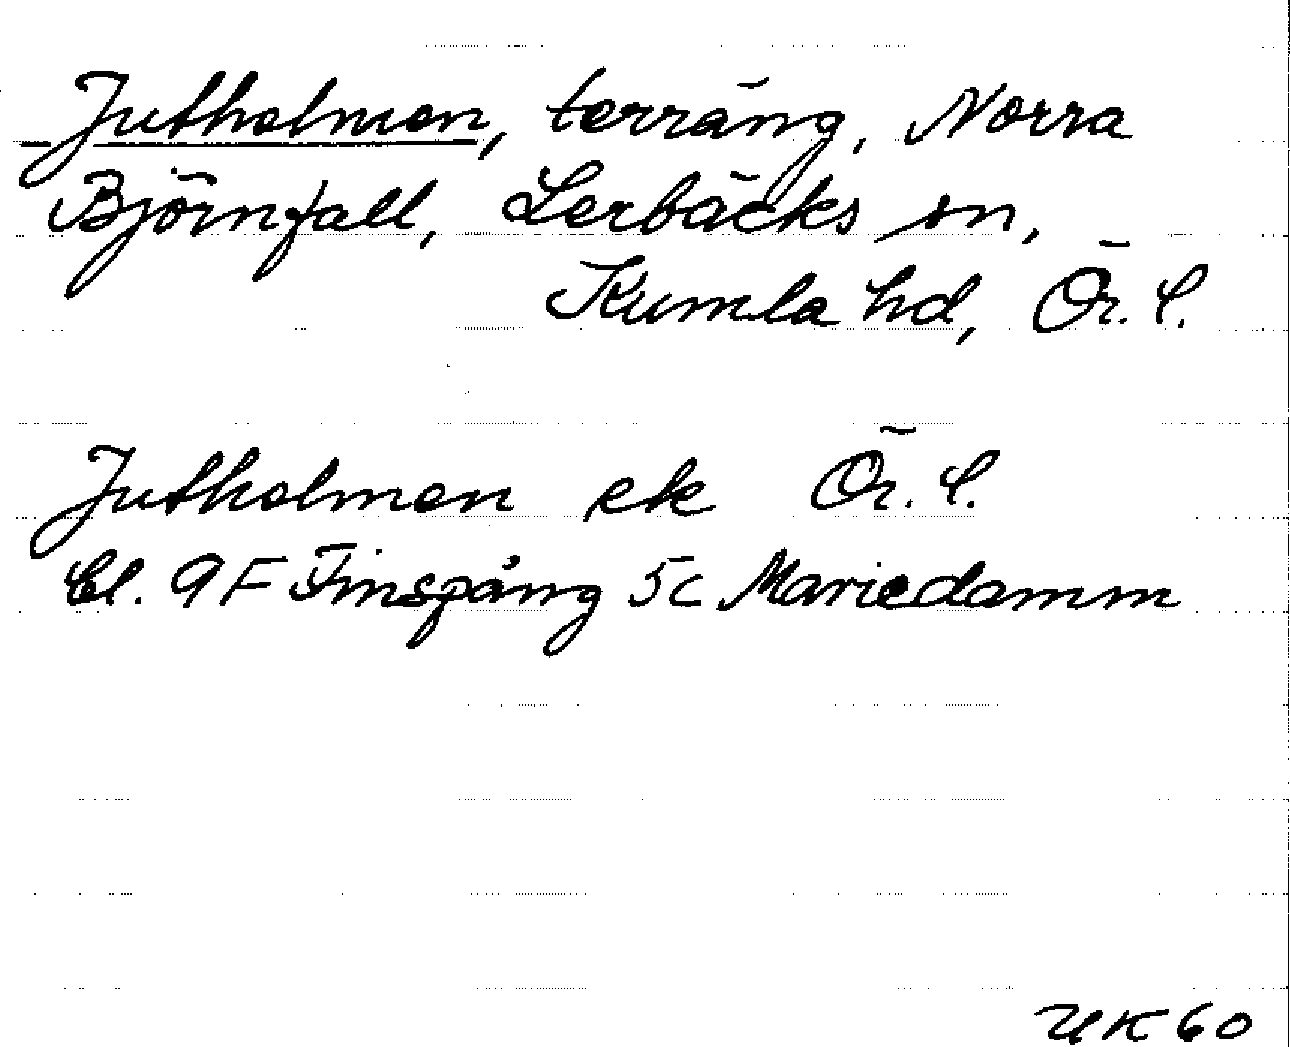 Jutholmen, terräng, Norra
Björnfall, Lerbäcks sn,
Kumla hd, Ör. l.
Jutholmen ek Ör. l.
Bl. 9F Finspång 5c Mariedamm
UK 60